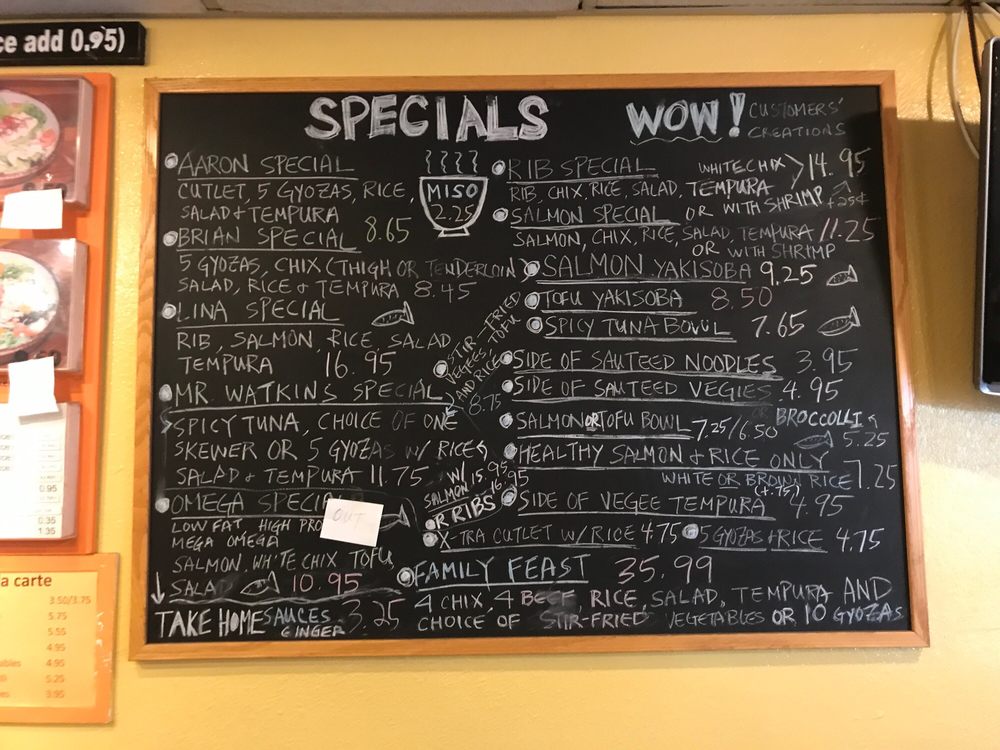 ce add 0.95)
SPECIALS
WOW! CUSTOMERS'
CREATIONS
AARON SPECIAL
CUTLET, 5 GYOZAS, RICE,
SALAD + TEMPURA
BRIAN SPECIAL 8.65
5 GYOZAS, CHIX (THIGH OR TENDERLOIN)
SALAD, RICE + TEMPURA 8.45
LINA SPECIAL
RIB, SALMON, RICE, SALAD
TEMPURA 16.95
MR. WATKINS SPECIAL
SPICY TUNA, CHOICE OF ONE
SKEWER OR 5 GYOZAS W/ RICE,
SALAD + TEMPURA 11.75
OMEGA SPECIA
OUT
LOW FAT, HIGH PRO
MEGA OMEGA
SALMON, WHITE CHIX TOFU,
SALAD 10.95
TAKE HOME SAUCES 3.25
GINGER
MISO
2.25
STIR-FRIED
VEGEES TOFU
AND RICE
8.75
RIB SPECIAL WHITE CHIX 14.95
RIB, CHIX, RICE, SALAD, TEMPURA
OR WITH SHRIMP +25¢
SALMON SPECIAL
SALMON, CHIX, RICE, SALAD, TEMPURA 11.25
OR WITH SHRIMP
SALMON YAKISOBA 9.25
TOFU YAKISOBA 8.50
SPICY TUNA BOWL 7.65
SIDE OF SAUTEED NOODLES 3.95
SIDE OF SAUTEED VEGIES 4.95
OR BROCCOLI
5.25
SALMON OR TOFU BOWL 7.25/6.50
HEALTHY SALMON + RICE ONLY
WHITE OR BROWN RICE 7.25
(+.75)
SIDE OF VEGEE TEMPURA 4.95
W/ 15.95
SALMON 16.95
OR RIBS
X-TRA CUTLET W/ RICE 4.75
5 GYOZAS + RICE 4.75
FAMILY FEAST 35.99
4 CHIX, 4 BEEF, RICE, SALAD, TEMPURA AND
CHOICE OF STIR-FRIED VEGETABLES OR 10 GYOZAS
0.95
0.35
1.35
a carte
3.50/3.75
5.75
5.55
4.95
ables 4.95
5.25
es 3.95